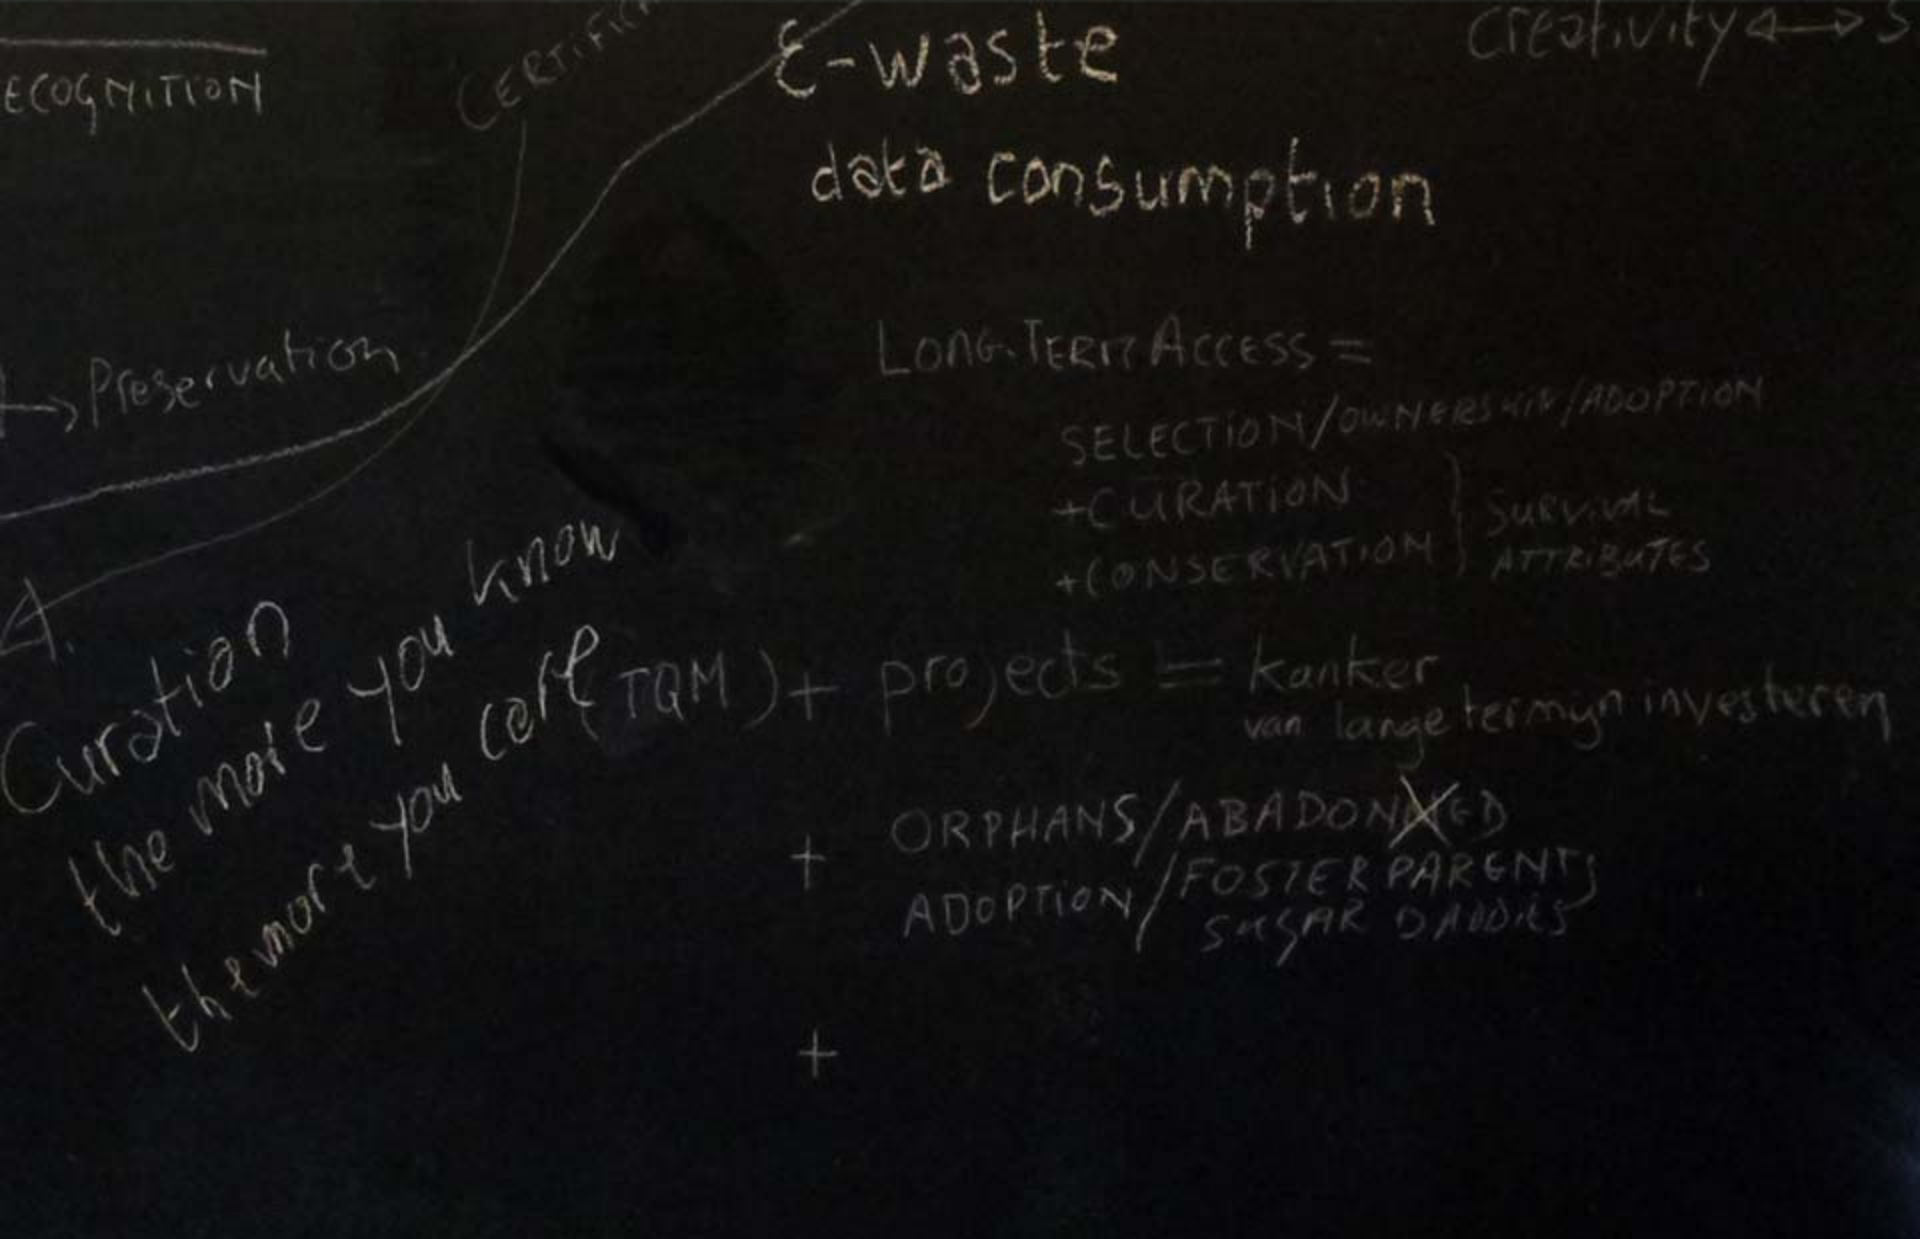 ECOGNITION
CERTIFIC
E-waste
data consumption
creativity ↔ S
→ Preservation
LONG-TERM ACCESS =
SELECTION/OWNERSHIP/ADOPTION
+CURATION
+CONSERVATION } SURVIVAL
ATTRIBUTES
A.
Curation
the more you know
the more you care (TQM)
+ projects = kanker
van lange termijn investeren
+ ORPHANS/ABADONED
ADOPTION/FOSTER PARENTS
SUGAR DADDIES
+